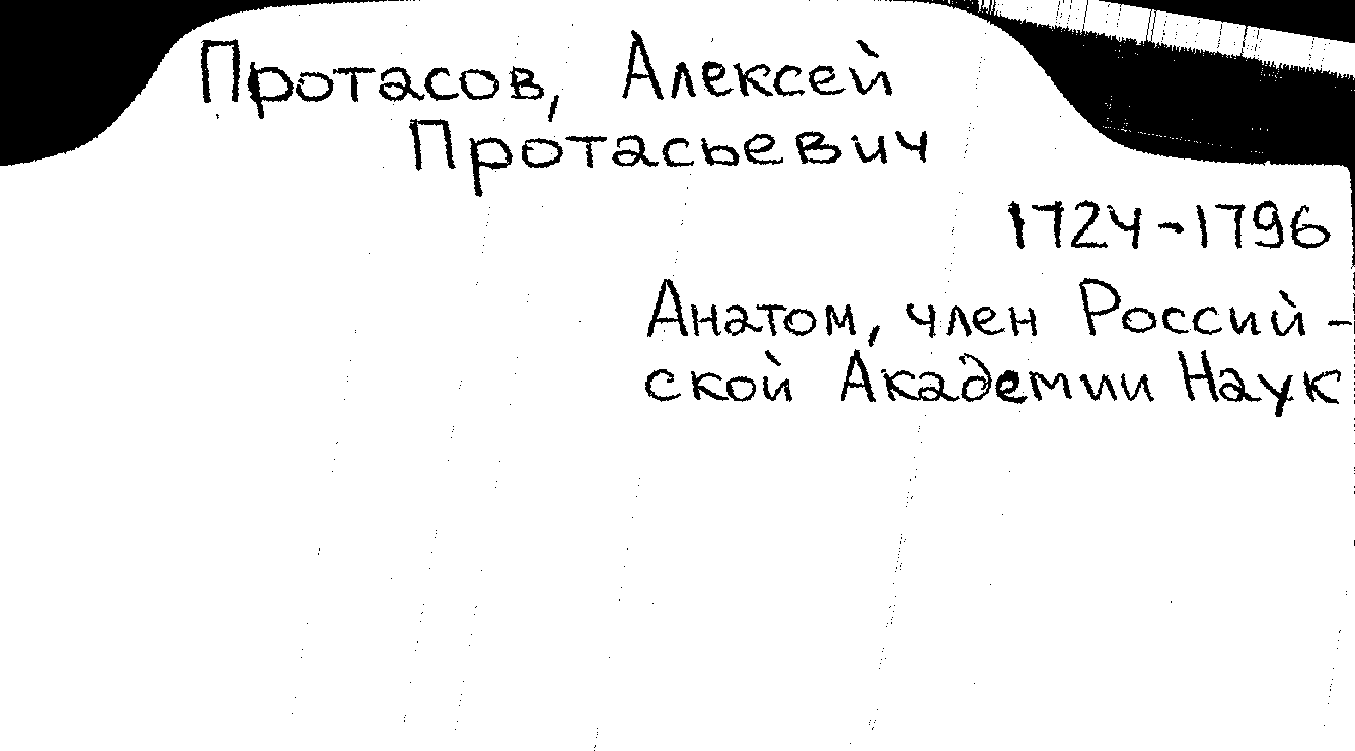 Протасов, Алексей
Протасьевич
1724-1796
Анатом, член Россий-
ской Академии Наук